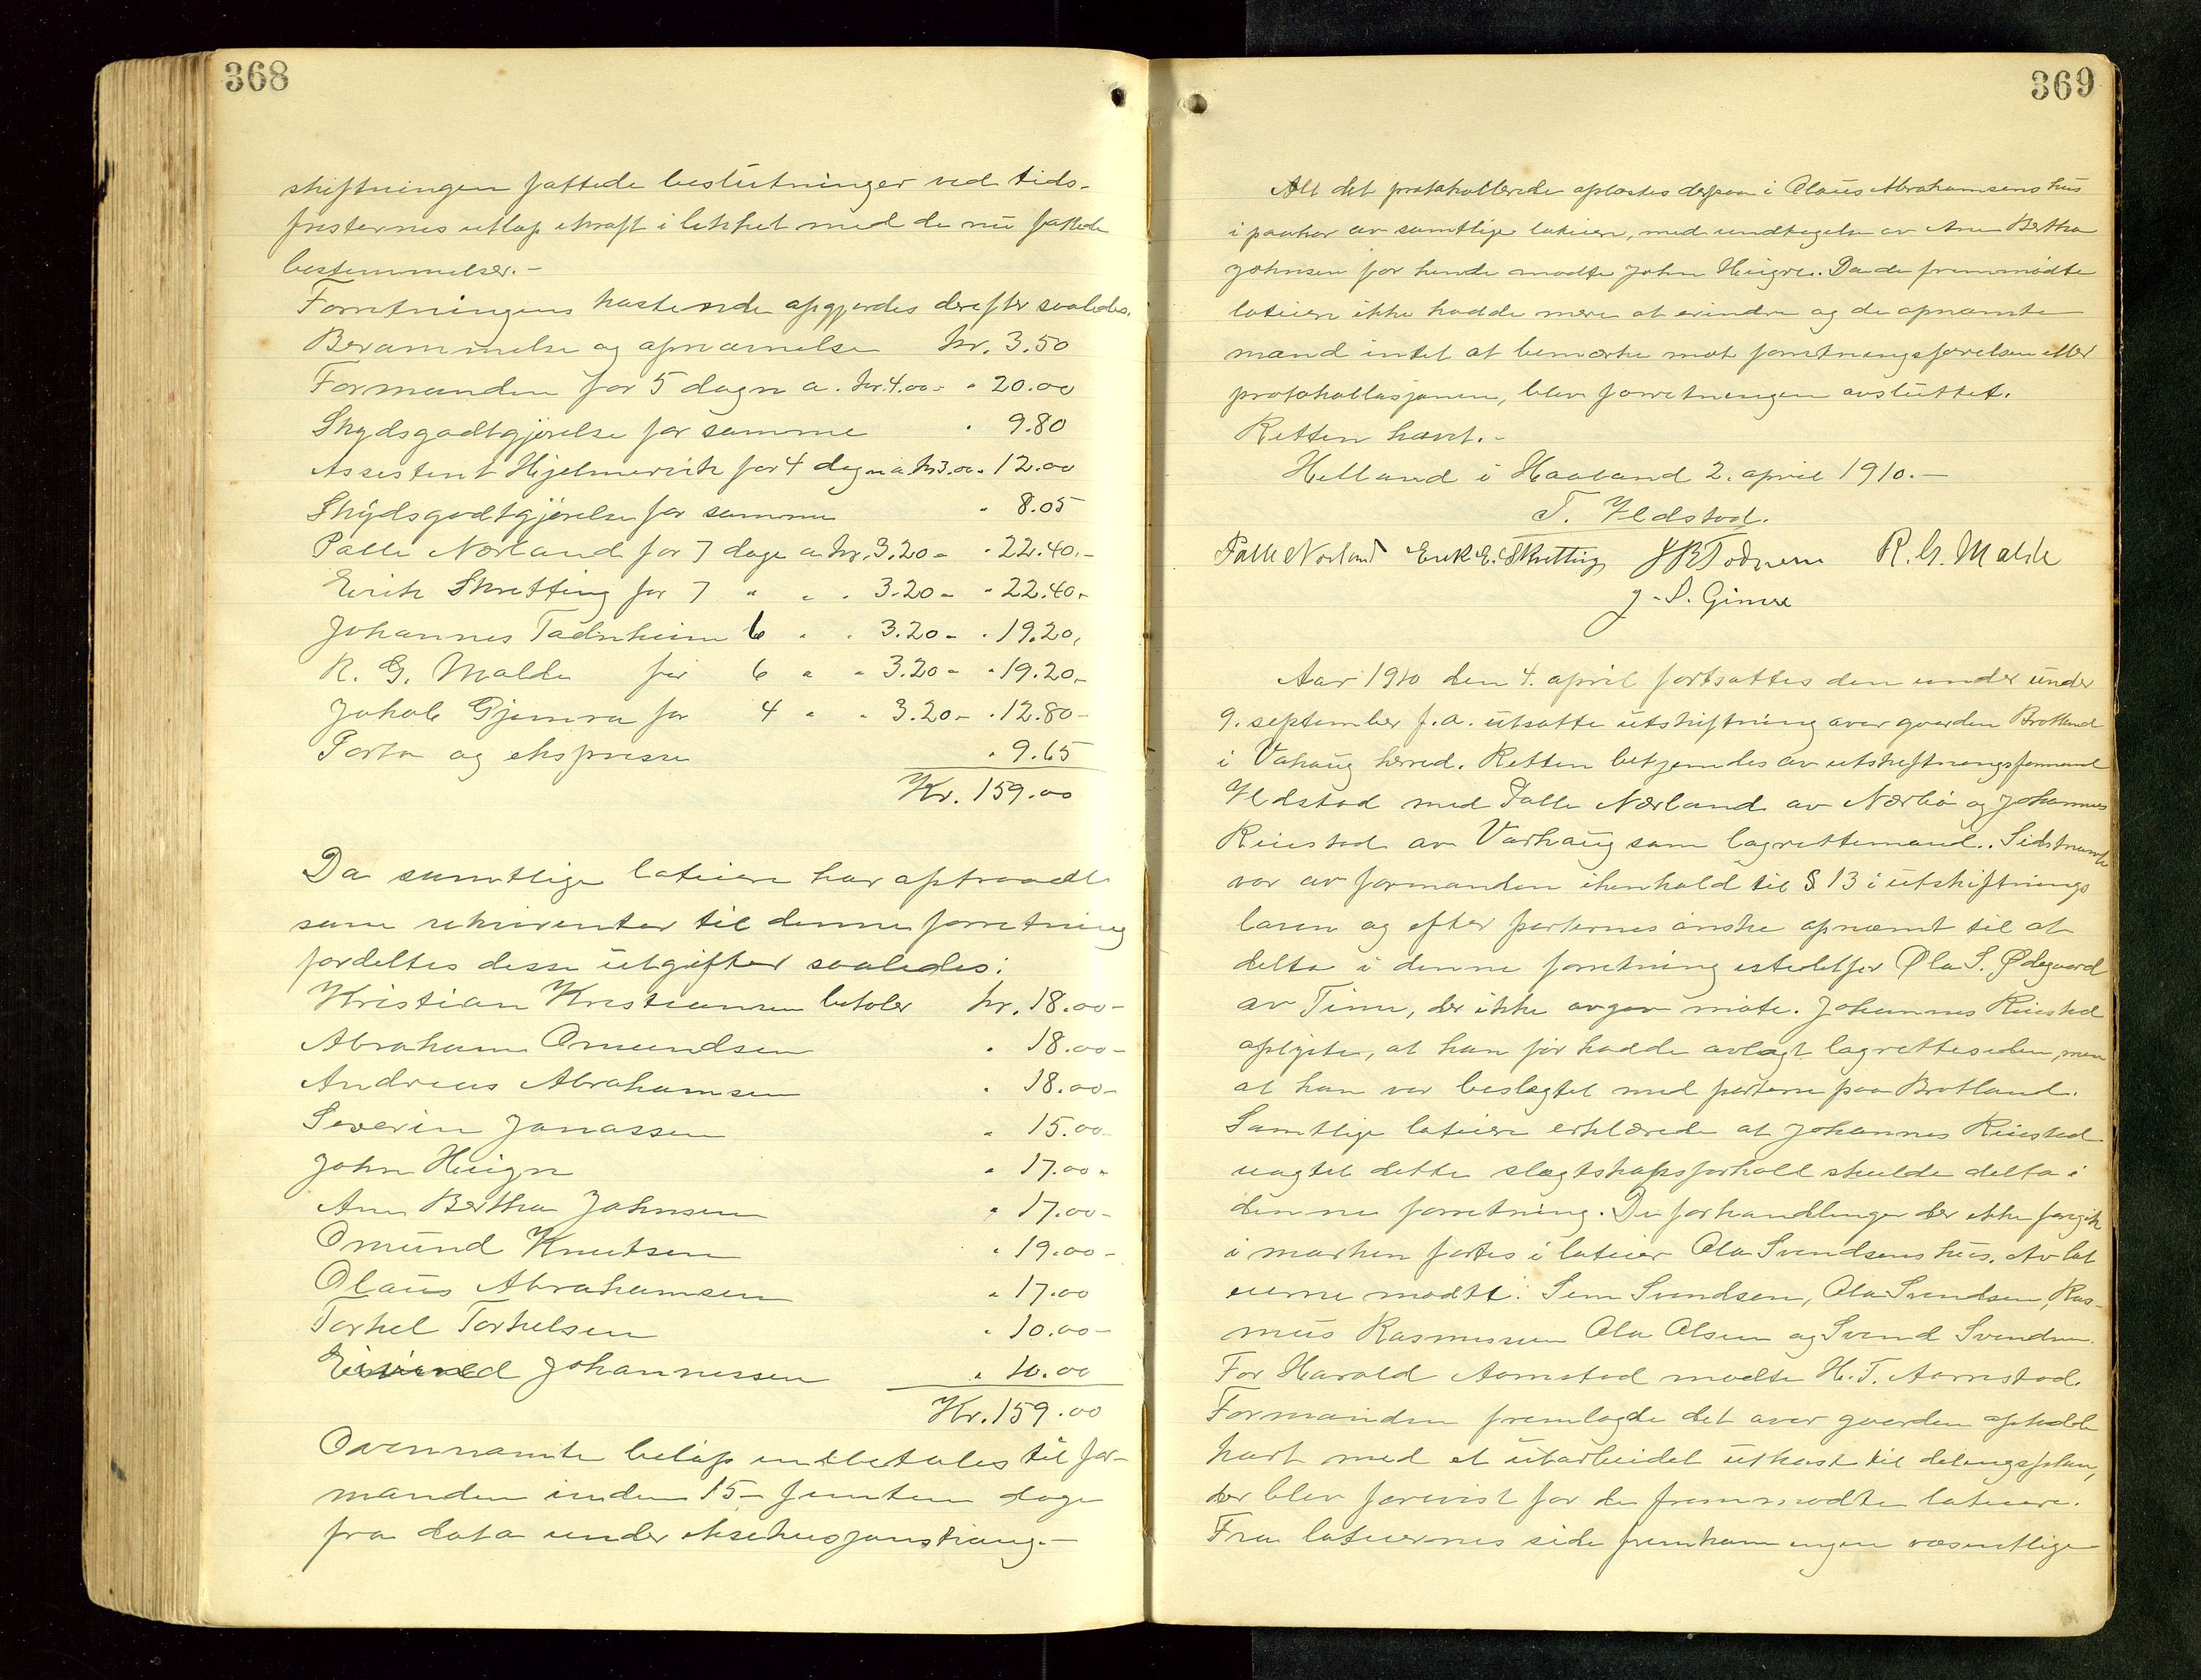 368
skiftningen fattede beslutninger ved tids-
fristernes utløp ikraft i likhet med de nu fattede
bestemmelser.-
Forretningens kostende opgjordes derefter saaledes.
Berammelse og opnævnelse kr. 3.50
Formanden for 5 dage a. kr. 4.00 - " 20.00
Skydsgodtgjørelse for samme " 9.80
Assistent Hjelmervik for 4 dage a kr 3.00 - 12.00
Skydsgodtgjørelse for samme " 8.05
Palle Nærland for 7 dage a kr. 3.20 - " 22.40.-
Eirik Skretting for 7 " " . 3.20 - " 22.40.-
Johannes Tadnheim 6 " . 3.20 - . 19.20.
R. G. Malde for 6 " " 3.20 - " 19.20.-
Jakob Gjemra for 4 " " 3.20 - . 12.80-
Porto og ekspresse " 9.65
Kr. 159.00
Da samtlige loteiere har optraadt
som rekvirenter til denne forretning
fordeltes disse utgifter saaledes:
Kristian Kristiansen betaler kr. 18.00-
Abraham Omundsen " 18.00-
Andreas Abrahamsen " 18.00-
Severin Jonassen " 15.00
John Huign " 17.00-
Ane Bertha Johnsen " 17.00-
Omund Knutsen " 19.00-
Olaus Abrahamsen " 17.00
Torkel Torkelsen " 10.00-
Eivind Johannessen " 10.00
Kr. 159.00
Ovennævnte beløp indbetales til for-
manden inden 15- femten dage
fra dato under eksekusjonstvang.-
369
Alt det protokollerede oplæstes derpaa i Olaus Abrahamsens hus
i paahør av samtlige loteiere, med undtagelse av Ane Bertha
Johnsen for hende mødte John Huigre. Da de fremmødte
loteiere ikke hadde mere at erindre og de opnævnte
mænd intet at bemerke mot forretningsførelsen eller
protokollasjonen, blev forretningen avsluttet.
Retten hævt.-
Helland i Haaland 2. april 1910.-
T. Ildstad.
Palle Nærland Eirik E. Skretting J B Todneem R. G. Malde
J. S. Gimre
Aar 1910 den 4. april fortsattes den under under
9. september f.a. utsatte utskiftning over gaarden Brotland
i Vahaug herred. Retten betjendes av utskiftningsformand
Ildstad med Palle Nærland av Nærbø og Johannes
Reiestad av Varhaug som lagrettemænd. Sidstnævnte
var av formanden ihenhold til § 13 i utskiftnings
loven og efter parternes ønske opnævnt til at
delta i denne forretning istedetfor Ola S. Ødegaard
av Time, der ikke avgav møte. Johannes Reiestad
oplyste, at han før hadde avlagt lagretteseden, men
at han var beslægtet med parterne paa Brotland.
Samtlige loteiere erklærede at Johannes Reiestad
uagtet dette slægtskapsforhold skulde delta i
denne forretning. De forhandlinger der ikke foregik
i marken førtes i loteier Ola Svendsens hus. Av lot
eierne mødte: Sem Svendsen, Ola Svendsen, Ras-
mus Rasmussen Ola Olsen og Svend Svendsen.
For Harald Aamstad mødte H. T. Aarrestad.
Formanden fremlagde det over gaarden optatte
kart med et utarbeidet utkast til delingsplan,
der blev forevist for de fremmødte loteiere.
Fra loteiernes side fremkom ingen væsentlige